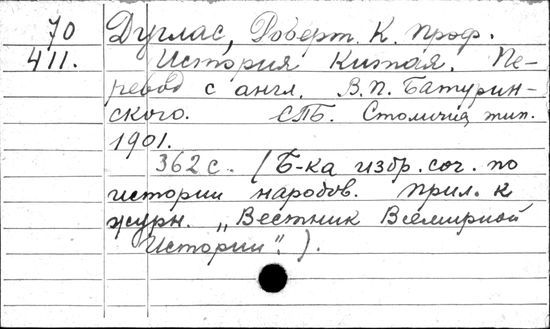 70 Дуглас, Роберт. К. проф.
411. История Китая. Пе-
ревод с англ. В.П. Батурин-
ского. СПБ. Столичн. тип.
1901.
362 с. (Б-ка избр. соч. по
истории народов. Прил. к
журн. „Вестник Всемирной
Истории“.).